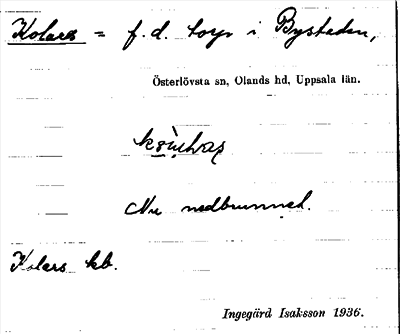 Kolars = f. d. torp i Bysteden,
Österlövsta sn, Olands hd, Uppsala län.
Nu nedbrunnet.
Kolars kb.
Ingegärd Isaksson 1936.